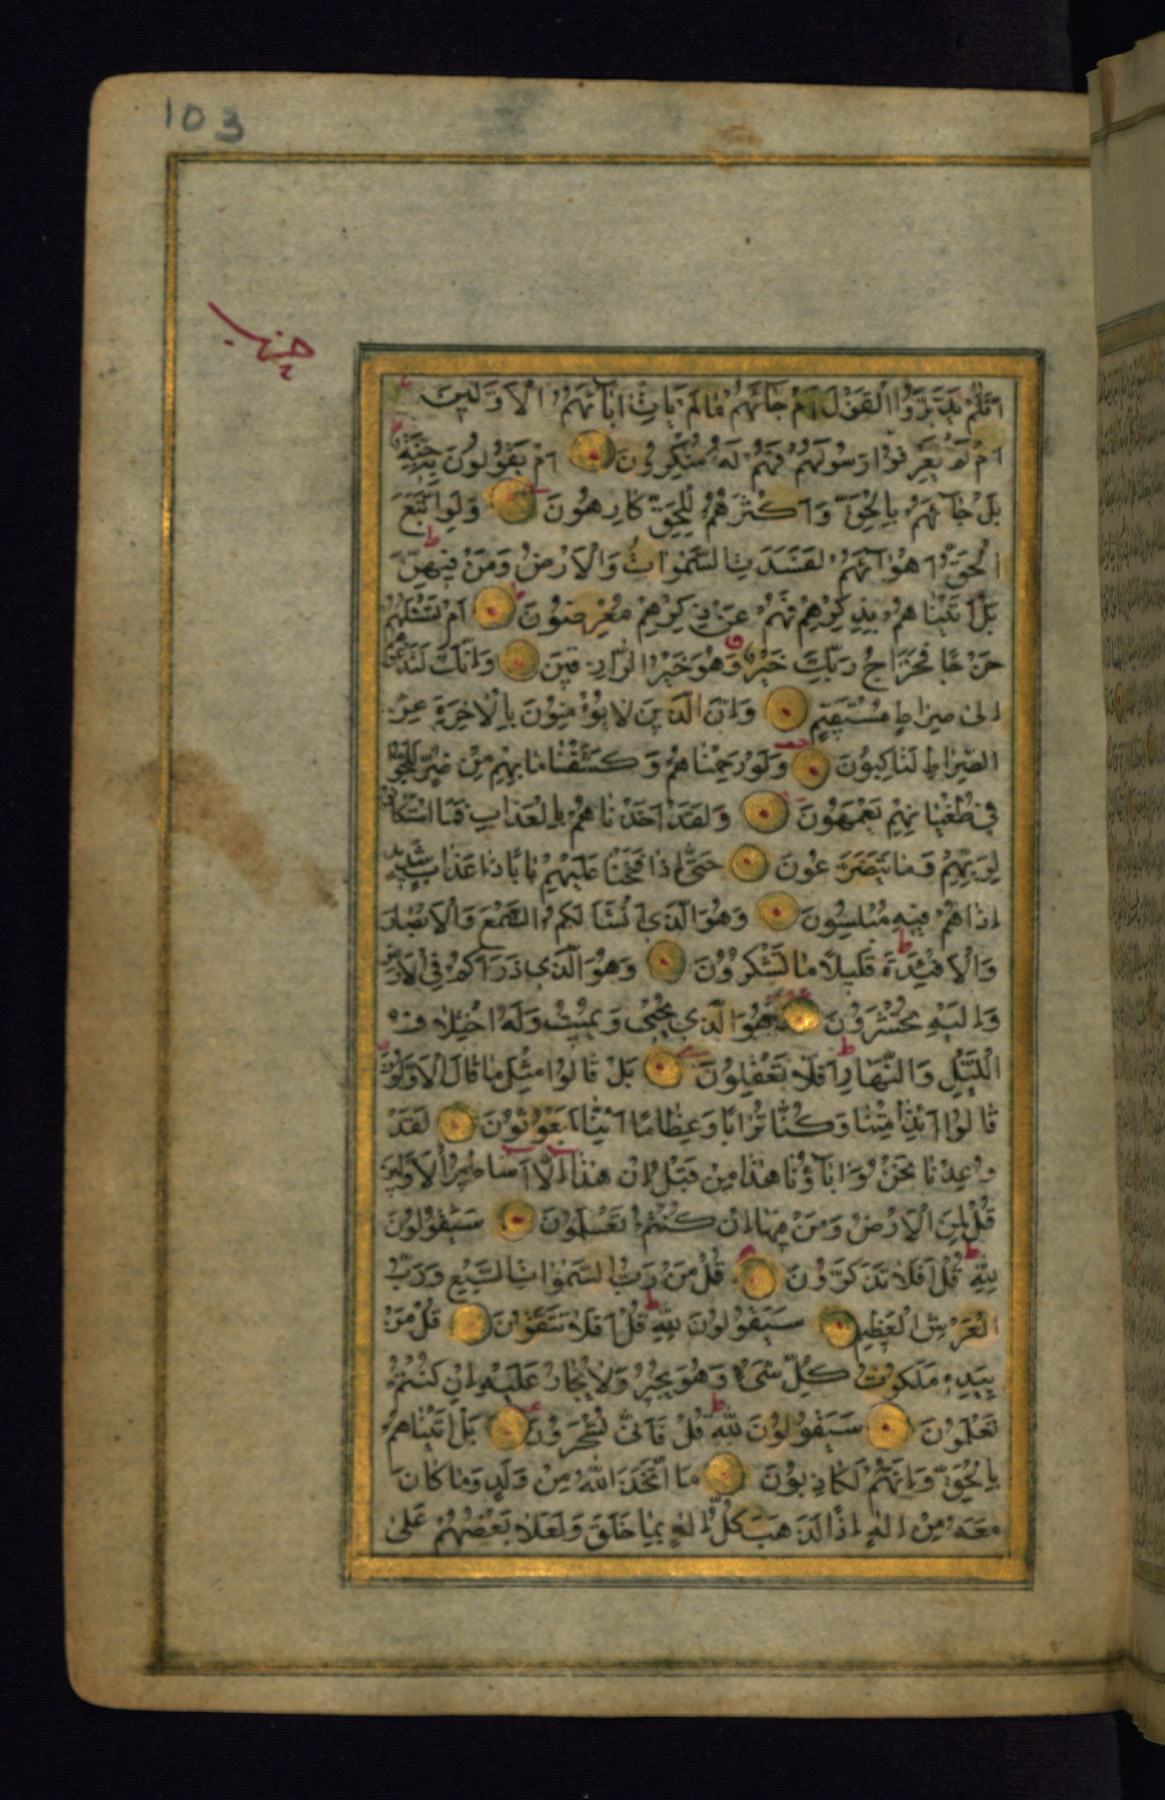 103
حزب
اَفَلَمْ يَدَّبَّرُوا الْقَوْلَ اَمْ جَائَهُمْ مَا لَمْ يَاْتِ اٰبَائَهُمُ الْاَوَّلينَ
اَمْ لَمْ يَعْرِفُوا رَسُولَهُمْ فَهُمْ لَهُ مُنْكِرُونَ اَمْ يَقُولُونَ بِهِ جِنَّةٌ
بَلْ جَائَهُمْ بِالْحَقِّ وَاَكْثَرُهُمْ لِلْحَقِّ كَارِهُونَ وَلَوِ اتَّبَعَ
الْحَقُّ اَهْوَائَهُمْ لَفَسَدَتِ السَّمٰوَاتُ وَالْاَرْضُ وَمَنْ فيهِنَّ
بَلْ اَتَيْنَاهُمْ بِذِكْرِهِمْ فَهُمْ عَنْ ذِكْرِهِمْ مُعْرِضُونَ اَمْ تَسْئَلُهُمْ
خَرْجًا فَخَرَاجُ رَبِّكَ خَيْرٌ وَهُوَ خَيْرُ الرَّازِقينَ وَاِنَّكَ لَتَدْعُوهُمْ
اِلىٰ صِرَاطٍ مُسْتَقيمٍ وَاِنَّ الَّذينَ لَا يُؤْمِنُونَ بِالْاٰخِرَةِ عَنِ
الصِّرَاطِ لَنَاكِبُونَ وَلَوْ رَحِمْنَاهُمْ وَكَشَفْنَا مَا بِهِمْ مِنْ ضُرٍّ لَلَجُّوا
في طُغْيَانِهِمْ يَعْمَهُونَ وَلَقَدْ اَخَذْنَاهُمْ بِالْعَذَابِ فَمَا اسْتَكَانُوا
لِرَبِّهِمْ وَمَا يَتَضَرَّعُونَ حَتّٰى اِذَا فَتَحْنَا عَلَيْهِمْ بَابًا ذَا عَذَابٍ شَديدٍ
اِذَا هُمْ فيهِ مُبْلِسُونَ وَهُوَ الَّذي اَنْشَاَ لَكُمُ السَّمْعَ وَالْاَبْصَارَ
وَالْاَفْئِدَةَ قَليلًا مَا تَشْكُرُونَ وَهُوَ الَّذي ذَرَاَكُمْ فِي الْاَرْضِ
وَاِلَيْهِ تُحْشَرُونَ وَهُوَ الَّذي يُحْيي وَيُميتُ وَلَهُ اخْتِلَافُ
الَّيْلِ وَالنَّهَارِ اَفَلَا تَعْقِلُونَ بَلْ قَالُوا مِثْلَ مَا قَالَ الْاَوَّلُونَ
قَالُوا اَئِذَا مِتْنَا وَكُنَّا تُرَابًا وَعِظَامًا اَئِنَّا لَمَبْعُوثُونَ لَقَدْ
وُعِدْنَا نَحْنُ وَاٰبَاؤُنَا هٰذَا مِنْ قَبْلُ اِنْ هٰذَا اِلَّا اَسَاطيرُ الْاَوَّلينَ
قُلْ لِمَنِ الْاَرْضُ وَمَنْ فيهَا اِنْ كُنْتُمْ تَعْلَمُونَ سَيَقُولُونَ
لِلّٰهِ قُلْ اَفَلَا تَذَكَّرُونَ قُلْ مَنْ رَبُّ السَّمٰوَاتِ السَّبْعِ وَرَبُّ
الْعَرْشِ الْعَظيمِ سَيَقُولُونَ لِلّٰهِ قُلْ اَفَلَا تَتَّقُونَ قُلْ مَنْ
بِيَدِهِ مَلَكُوتُ كُلِّ شَىْءٍ وَهُوَ يُجيرُ وَلَا يُجَارُ عَلَيْهِ اِنْ كُنْتُمْ
تَعْلَمُونَ سَيَقُولُونَ لِلّٰهِ قُلْ فَاَنّٰى تُسْحَرُونَ بَلْ اَتَيْنَاهُمْ
بِالْحَقِّ وَاِنَّهُمْ لَكَاذِبُونَ مَا اتَّخَذَ اللّٰهُ مِنْ وَلَدٍ وَمَا كَانَ
مَعَهُ مِنْ اِلٰهٍ اِذًا لَذَهَبَ كُلُّ اِلٰهٍ بِمَا خَلَقَ وَلَعَلَا بَعْضُهُمْ عَلىٰ